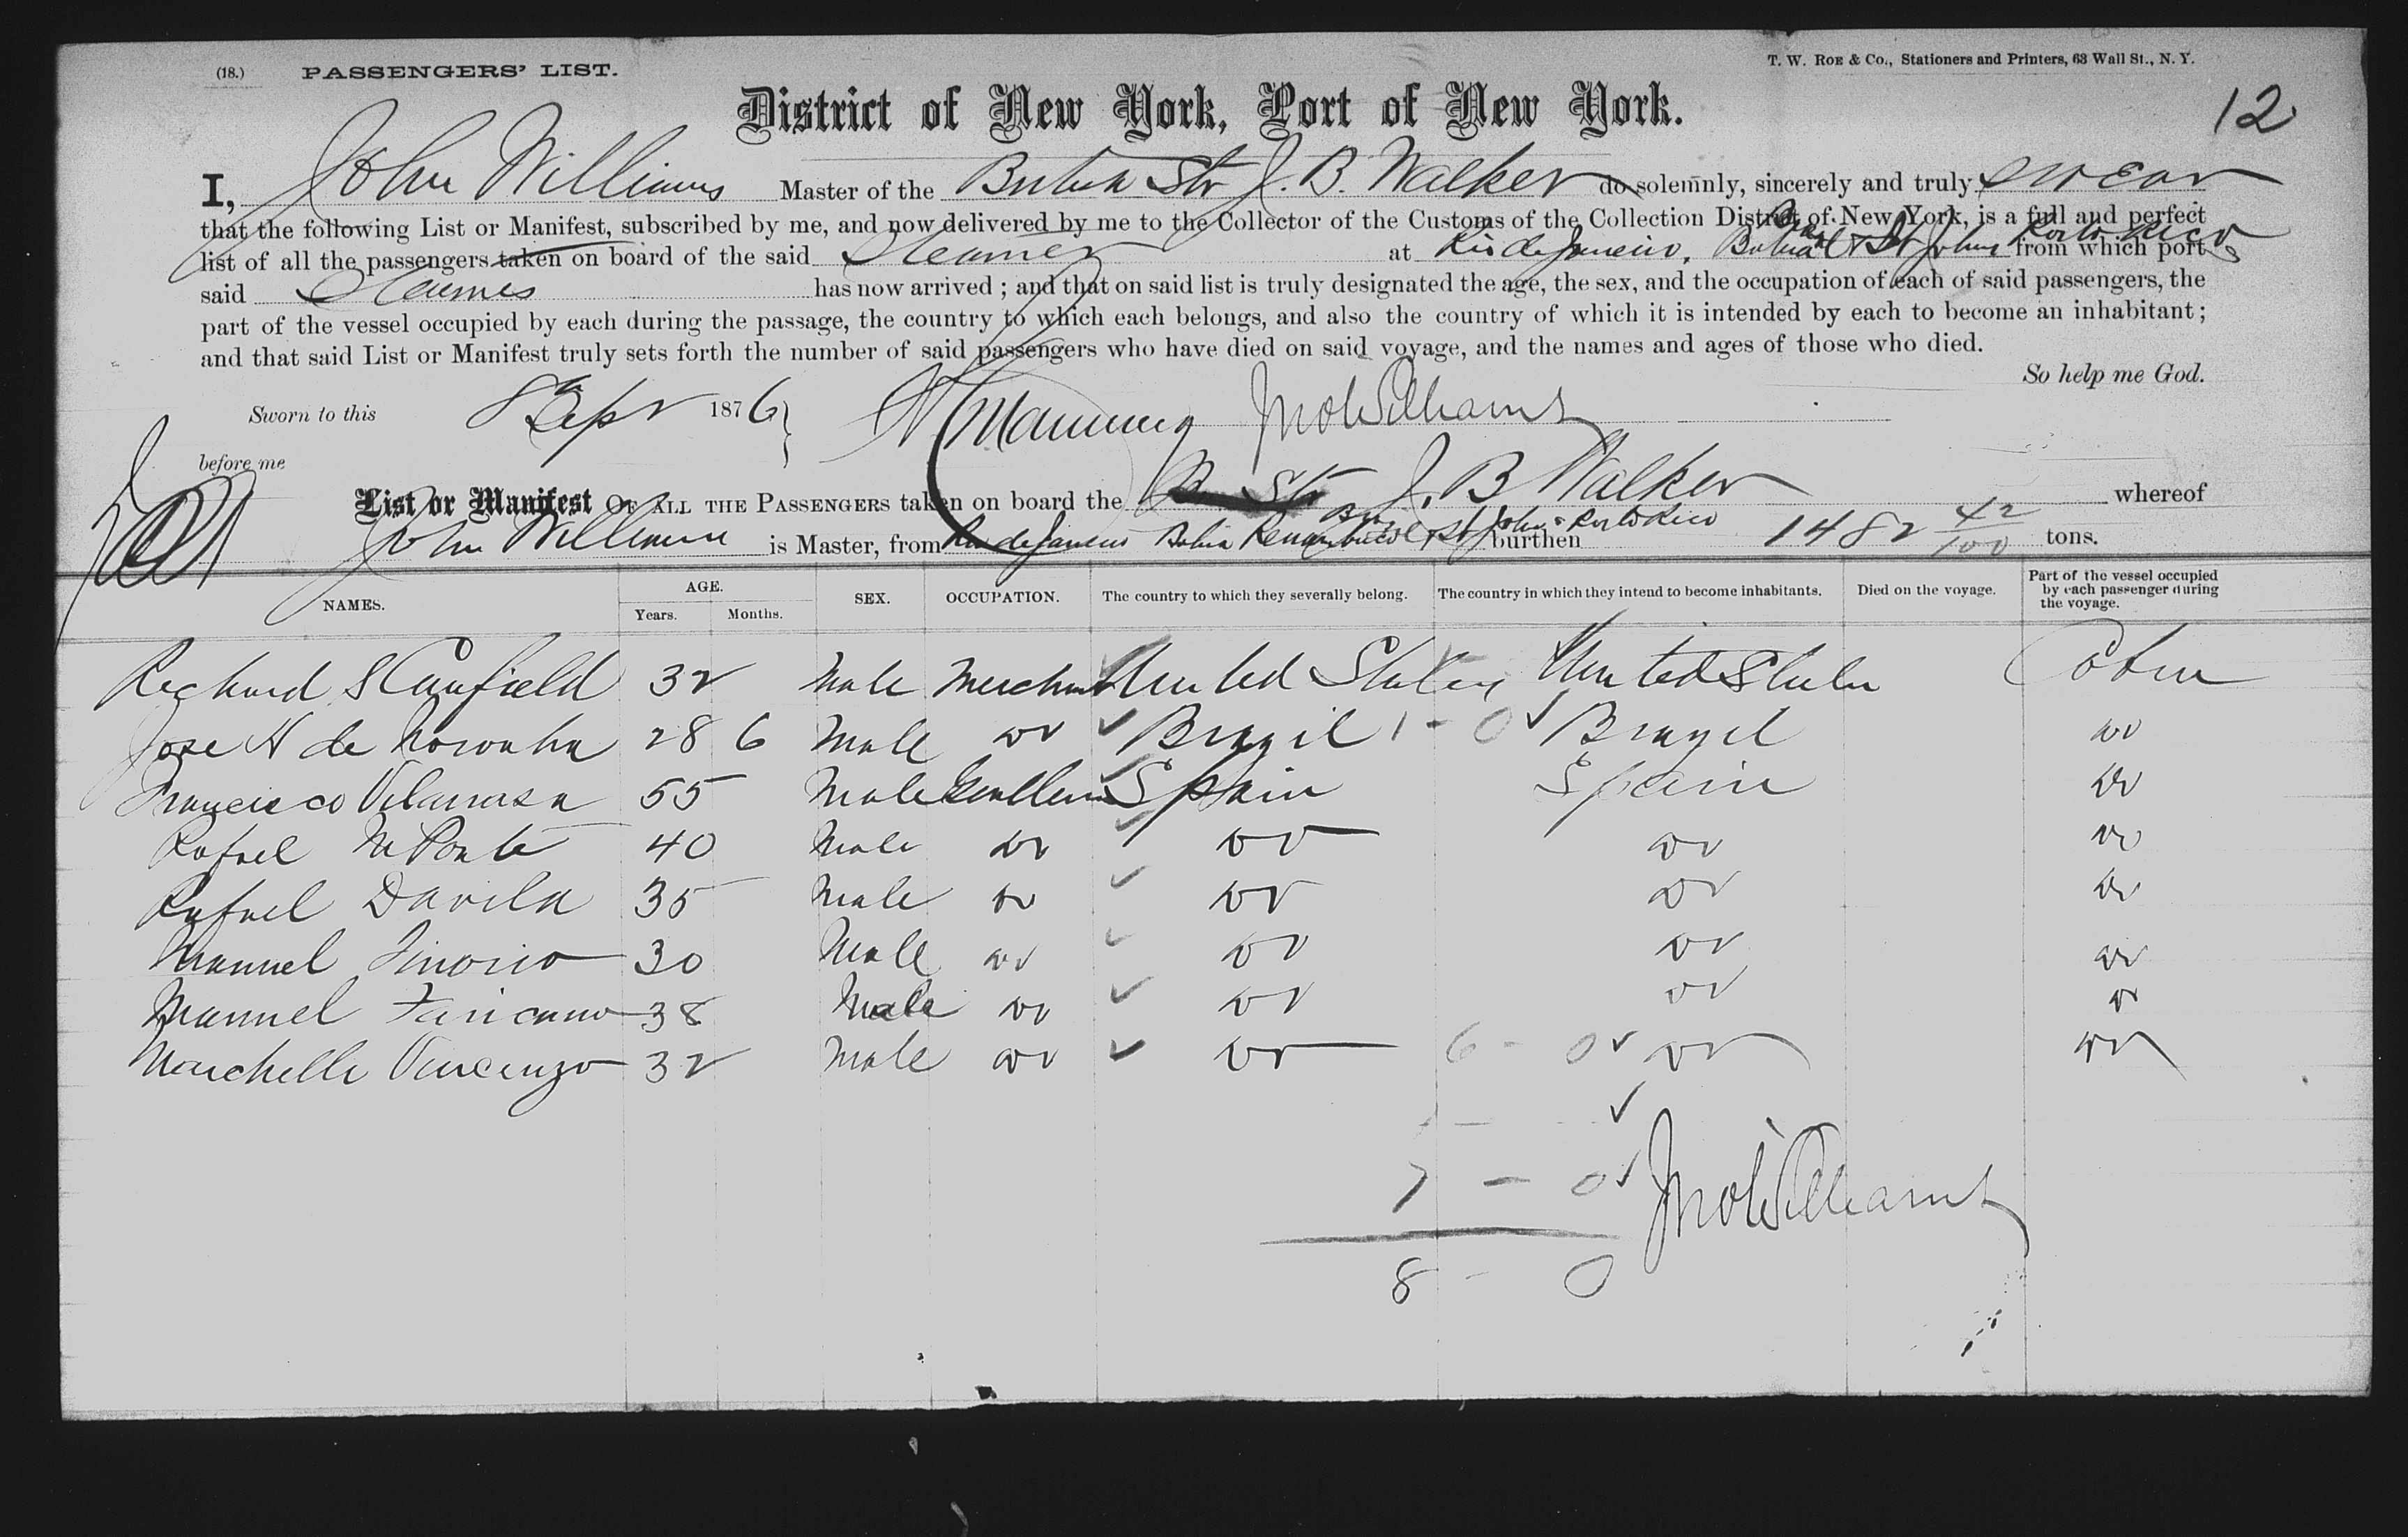 (18.) PASSENGERS' LIST. T. W. ROE & Co., Stationers and Printers, 63 Wall St., N. Y.
District of New York, Port of New York. 12
I, John Williams Master of the British Str J. B. Walker do solemnly, sincerely and truly swear
that the following List or Manifest, subscribed by me, and now delivered by me to the Collector of the Customs of the Collection District of New York, is a full and perfect
list of all the passengers taken on board of the said Steamer at Rio de Janeiro, Bahia & St Johns Porto Rico from which port
said Steamer has now arrived ; and that on said list is truly designated the age, the sex, and the occupation of each of said passengers, the
part of the vessel occupied by each during the passage, the country to which each belongs, and also the country of which it is intended by each to become an inhabitant ;
and that said List or Manifest truly sets forth the number of said passengers who have died on said voyage, and the names and ages of those who died.
So help me God.
Sworn to this 8 Apr 1876 Jno Williams
before me
List or Manifest OF ALL THE PASSENGERS taken on board the Str J. B Walker whereof
John Williams is Master, from Rio de Janeiro Bahia St Johns Porto Rico burthen 1482 42/100 tons.
NAMES. AGE. Years. Months. SEX. OCCUPATION. The country to which they severally belong. The country in which they intend to become inhabitants. Died on the voyage. Part of the vessel occupied by each passenger during the voyage.
Richard S Canfield 32 Male Merchant United States United States Cabin
Jose H de Noronha 28 6 Male do Brazil 1 - 0 Brazil do
Francisco 55 Male Gentleman Spain Spain do
Rafael 40 Male do do do do
Rafael Davila 35 Male do do do do
Manuel 30 Male do do do do
Manuel 38 Male do do do do
Vincenzo 32 Male do do 6 - 0 do do
7 - 0 Jno Williams
8 - 0